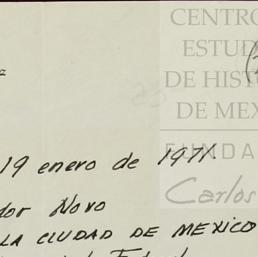 CENTRO
ESTUD
DE HIST
DE MEX
FUNDA
Carlos
19 enero de 1971.
dor Novo
LA CIUDAD DE MEXICO